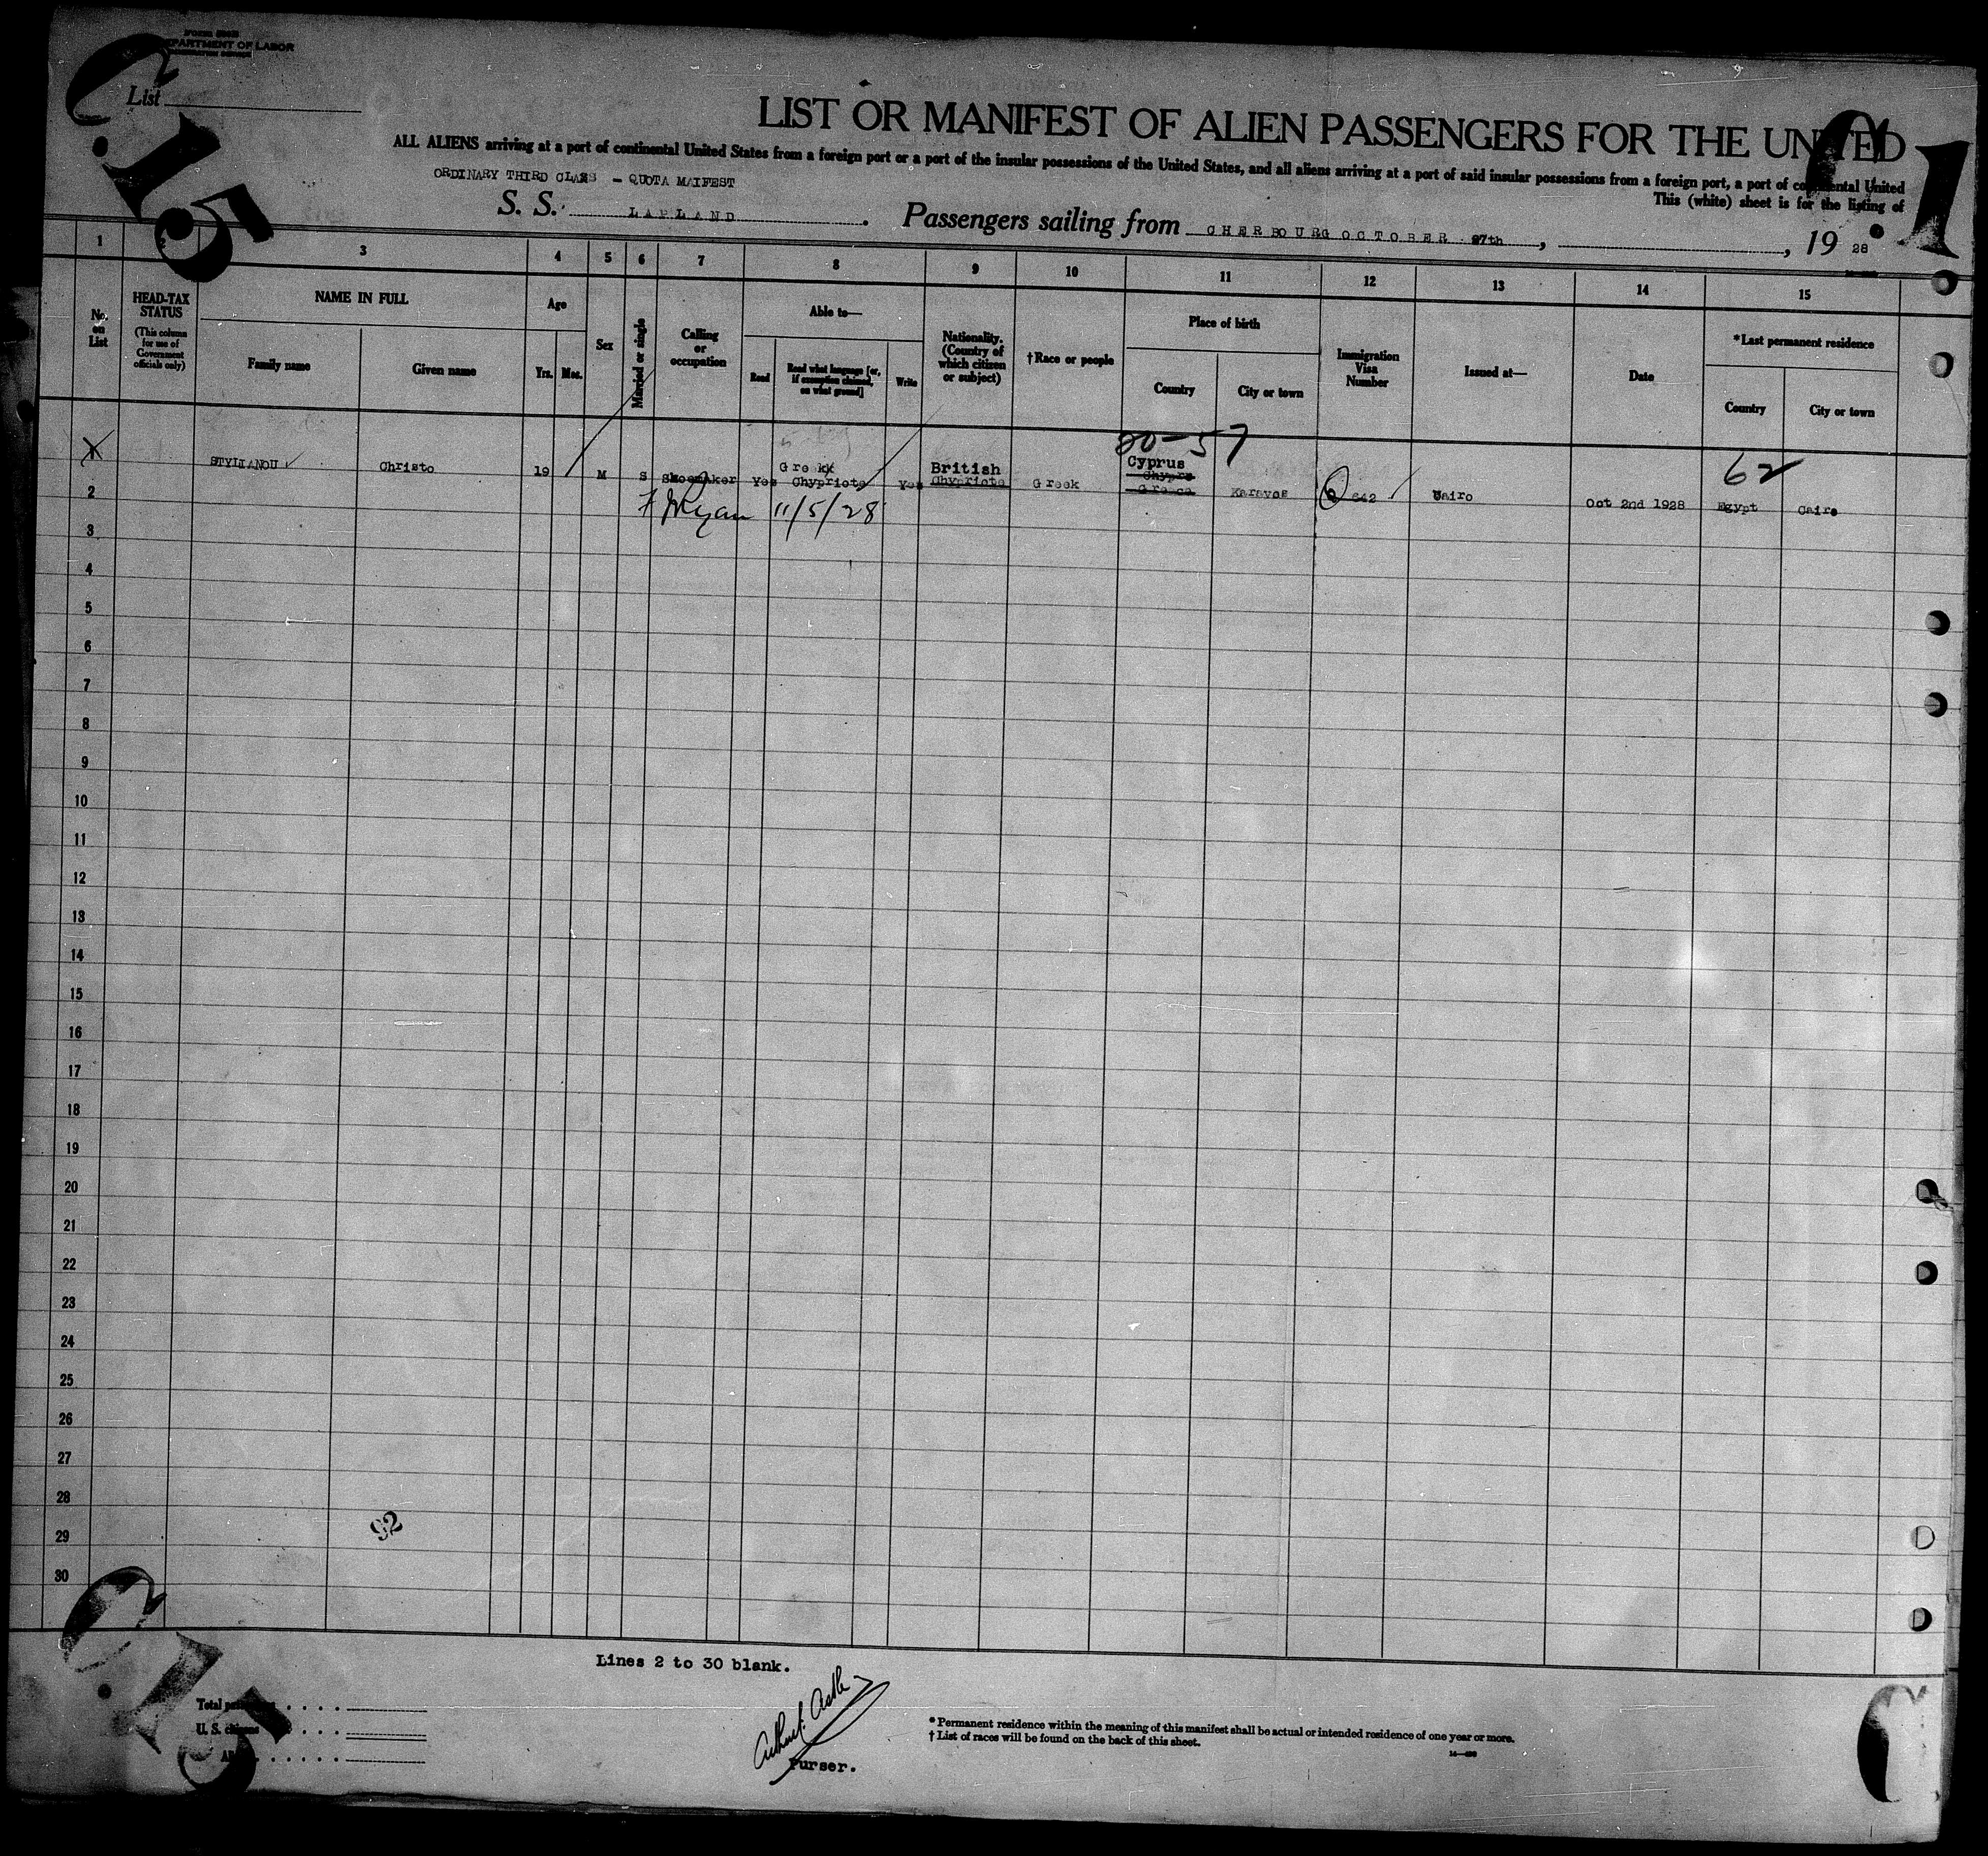 DEPARTMENT OF LABOR
List
15
1
LIST OR MANIFEST OF ALIEN PASSENGERS FOR THE UNITED
ALL ALIENS arriving at a port of continental United States from a foreign port or a port of the insular possessions of the United States, and all aliens arriving at a port of said insular possessions from a foreign port, a port of continental United
This (white) sheet is for the listing of
ORDINARY THIRD CLASS - QUOTA MAIFEST
S. S. LAPLAND. Passengers sailing from CHERBOURG OCTOBER 27th, , 19 28
1 2 3 4 5 6 7 8 9 10 11 12 13 14 15
No. on List
HEAD-TAX STATUS
(This column for use of Government officials only)
NAME IN FULL
Family name
Given name
Age
Yrs.
Mos.
Sex
Married or single
Calling or occupation
Able to—
Read
Read what language [or, if exemption claimed, on what ground]
Write
Nationality. (Country of which citizen or subject)
†Race or people
Place of birth
Country
City or town
Immigration Visa Number
Issued at—
Date
*Last permanent residence
Country
City or town
20-57
62
STYLIANOU Christo 19 M S Shoemaker Yes Greek Chypriote Yes British Chypriote Greek Cyprus Chypre Greece Karavos 642 Cairo Oct 2nd 1928 Egypt Cairo
Ryan 11/5/28
2
3
4
5
6
7
8
9
10
11
12
13
14
15
16
17
18
19
20
21
22
23
24
25
26
27
28
29
30
92
Lines 2 to 30 blank.
15
Total
U. S. citizens
Purser.
* Permanent residence within the meaning of this manifest shall be actual or intended residence of one year or more.
† List of races will be found on the back of this sheet.